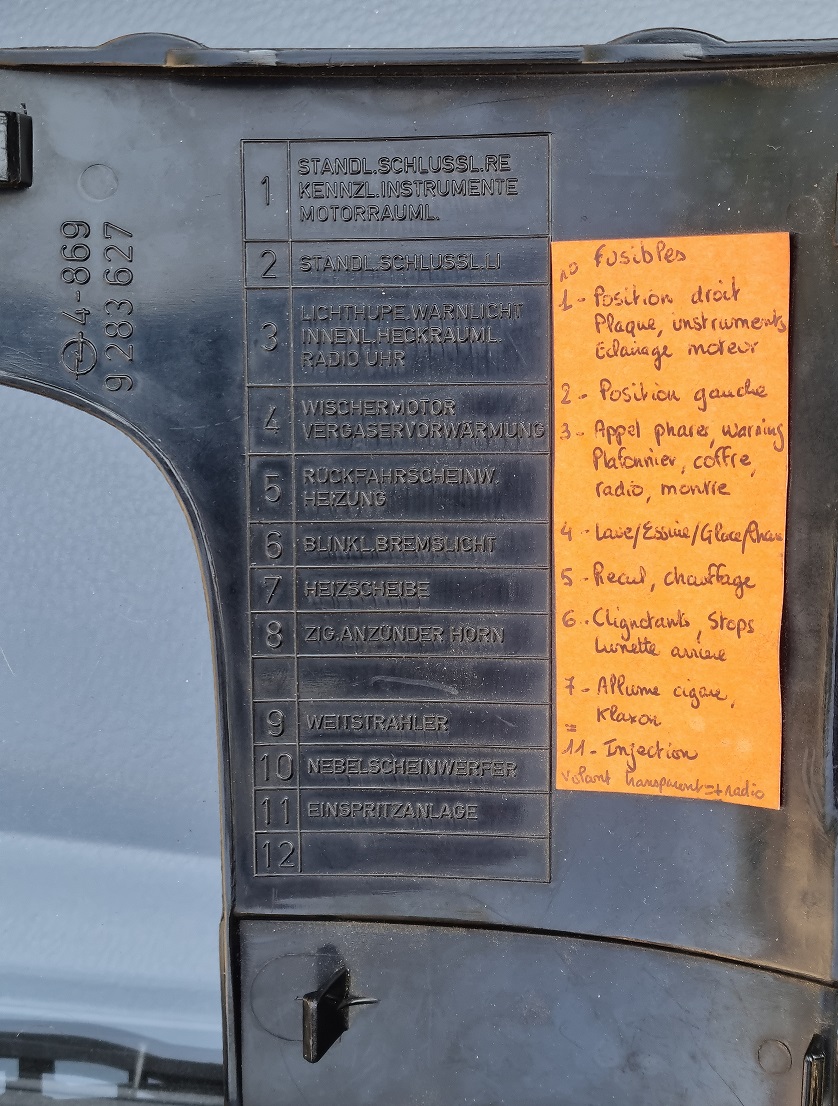 4-869
9 283 627
1 STANDL.SCHLUSSL.RE
KENNZL.INSTRUMENTE
MOTORRAUML.
2 STANDL.SCHLUSSL.LI
3 LICHTHUPE.WARNLICHT
INNENL.HECKRAUML.
RADIO UHR
4 WISCHERMOTOR
VERGASERVORWÄRMUNG
5 RÜCKFAHRSCHEINW.
HEIZUNG
6 BLINKL.BREMSLICHT
7 HEIZSCHEIBE
8 ZIG.ANZÜNDER HORN
9 WEITSTRAHLER
10 NEBELSCHEINWERFER
11 EINSPRITZANLAGE
12
no Fusibles
1 - Position droit
Plaque, instruments
Eclairage moteur
2 - Position gauche
3 - Appel phares, warning
Plafonnier, coffre,
radio, montre
4 - Lave/Essuie/Glace/
5 - Recul, chauffage
6 - Clignotants, Stops
Lunette arriere
7 - Allume cigare,
Klaxon
=
11 - Injection
volant transparent = + radio